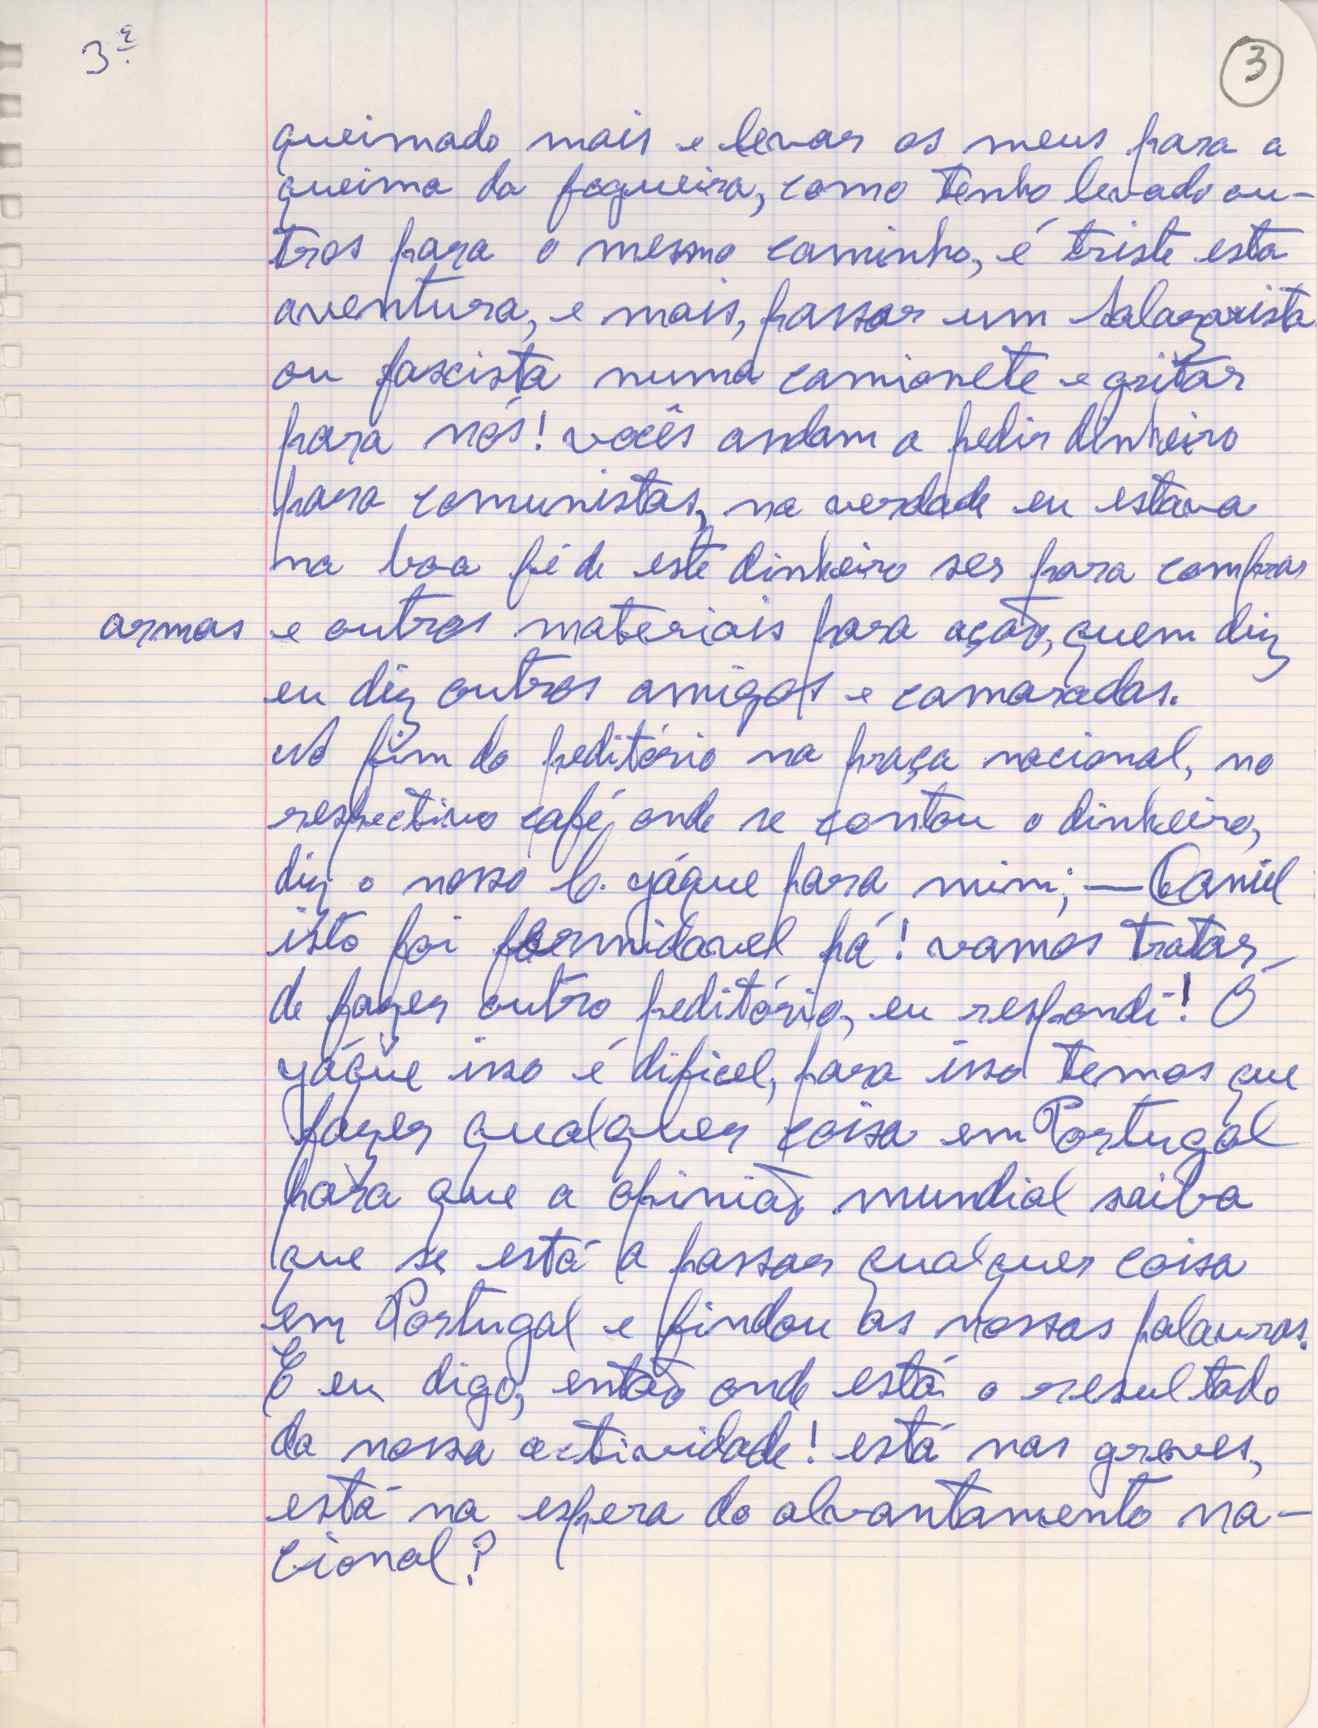 3ª
3
queimado mais e levar os meus para a
queima da fogueira, como tenho levado ou-
tros para o mesmo caminho, é triste esta
aventura, e mais, passar um Salazarista
ou fascista numa camionete e gritar
para nós! vocês andam a pedir dinheiro
para comunistas, na verdade eu estava
na boa fé de este dinheiro ser para comprar
armas e outros materiais para ação, quem diz
eu diz outros amigos e camaradas.
No fim do peditório na praça nacional, no
respectivo café, onde se contou o dinheiro,
diz o nosso C. yáque para mim; — Camiel
isto foi formidavel pá! vamos tratar
de fazer outro peditório, eu respondi! Ó
yáque isso é dificel, para isso temos que
fazer qualquer coisa em Portugal
para que a opinião mundial saiba
que se está a passar qualquer coisa
em Portugal e findou as nossas palavras.
E eu digo, então onde está o resultado
da nossa actividade! está nas greves,
está na espera do alvantamento na-
cional?